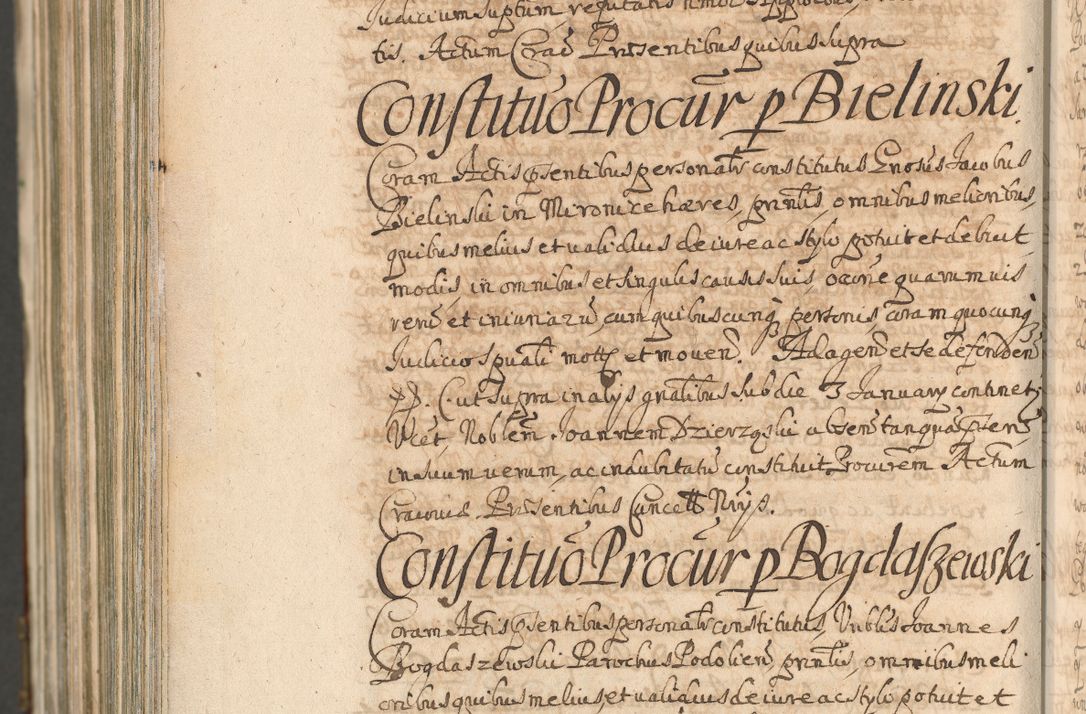 Judicium suptum, reputatis
tis. Actum Crac Presentibus quibus supra
Constitutō Procūr p Bielinski
Coram Actis psentibus personalr constitutus Gnosus Jacobus
Bielinski in Mironice hæres, prntis, omnibus melioribus,
quibus melius et validius de iure ac stylo potuit et debuit
modis, in omnibus et singulis causis suis, occne quarumuis
rerū et iniuriarū, cum quibuscunq personis, coram quocunq
Judicio spuali mottę et mouen. Ad agen et se defenden
Cut supra in alys gnalibus sub die 3 January continet,
Ucet Noblem Joannem Dzierzgski absen tanqua psten
in suum uerum, ac indubitatū constituit Procurem Actum
Cracouiæ Presentibus Cancell Nrys.
Constitutō Procūr p Bogdaszewski
Coram Actis psentibus personalr constitutus, Vnblis Joannes
Bogdaszewski Parochus Podolien, prntis, omnibus meli
oribus quibus melius, et validius de iure ac stylo potuit et